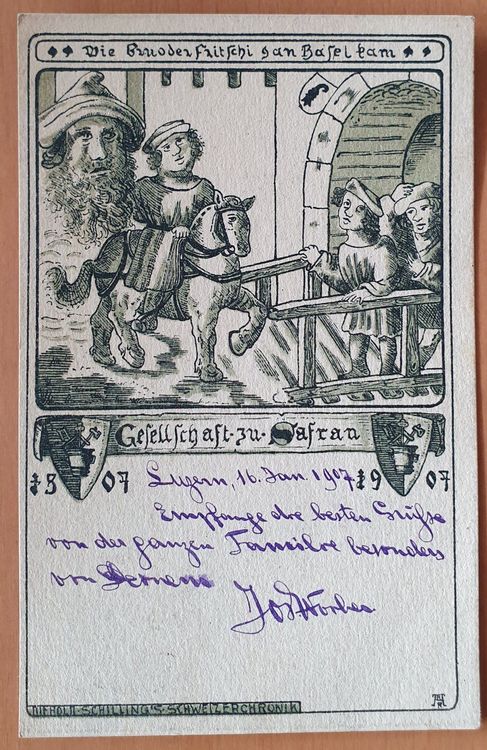 Wie Bruoder Fritschi gan Basel kam
Gesellschaft · zu · Safran
1507 1907
Luzern, 16. Jan. 1907.
Empfange die besten Grüsse
von der ganzen Familie besonders
von
DIEBOLD · SCHILLING'S · SCHWEIZERCHRONIK